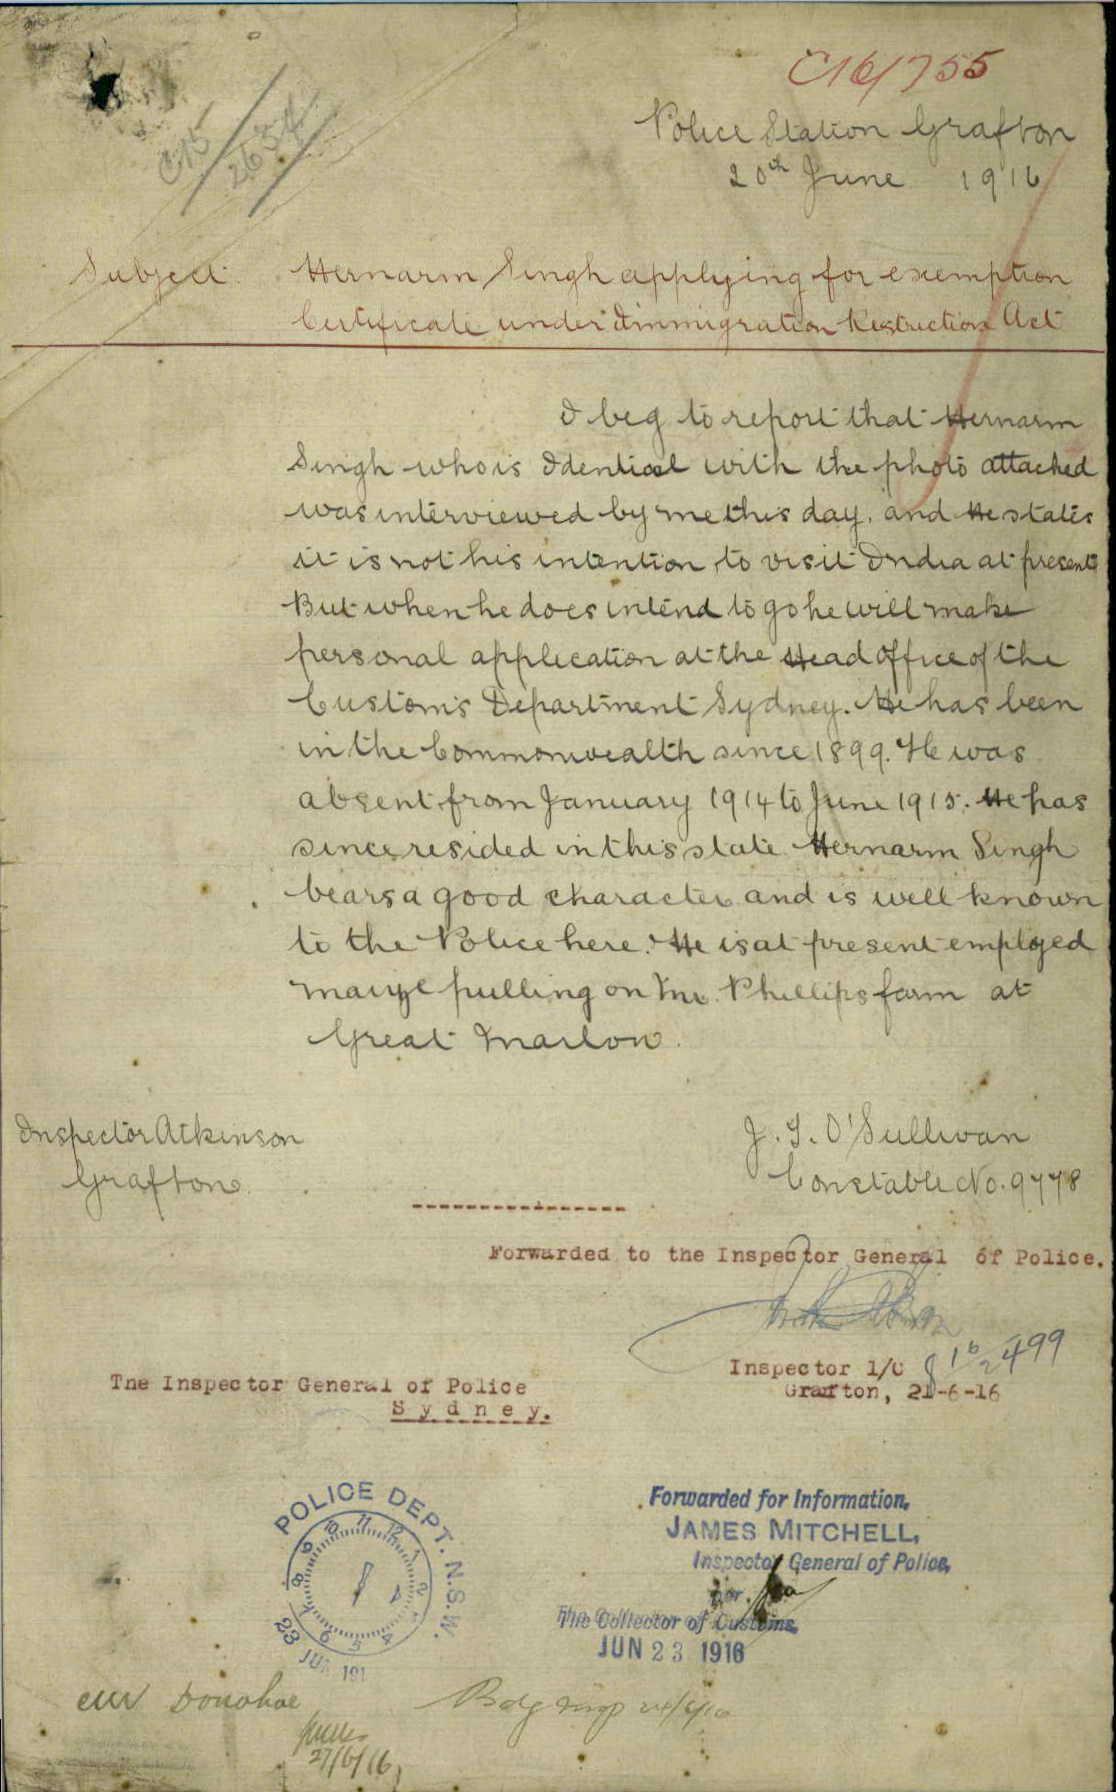 C16/755
C15/2654
Police Station Grafton
20th June 1916
Subject Hernarm Singh applying for exemption
Certificate under Immigration Restriction Act
I beg to report that Hernarm
Singh who is Identical with the photo attached
was interviewed by me this day. and He states
it is not his intention to visit India at present
But when he does intend to go he will make
personal application at the Head office of the
Customs Department Sydney. He has been
in the Commonwealth since 1899. He was
absent from January 1914 to June 1915. He has
since resided in this state Hernarm Singh
bears a good character and is well known
to the Police here. He is at present employed
maize pulling on Mr. Phillips farm at
Great Marlow.
Inspector Atkinson
Grafton
J. T. O'Sullivan
Constable No. 9778
Forwarded to the Inspector General of Police.
Inspector 1/C
Grafton, 21-6-16
499
The Inspector General of Police
Sydney.
POLICE DEPT. N.S.W.
10 11 12 1 2 4 5 6 7 8 9
23 JUN 191
Forwarded for Information,
JAMES MITCHELL,
Inspector General of Police,
per.
The Collector of Customs
JUN 23 1916
Donohoe
27/6/16